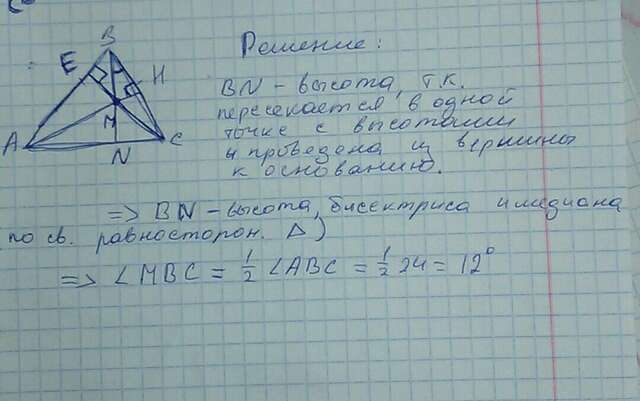 Решение:
B
E
H
M
A
N
C
BN - высота, т.к.
пересекается в одной
точке с высотами
и проведена из вершины
к основанию.
=> BN - высота, бисектриса и медиана
по св. равносторон. Δ)
=> ∠MBC = 1/2 ∠ABC = 1/2 24 = 12°